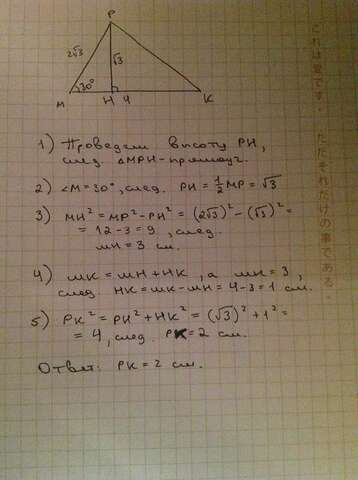 P
2√3
√3
30°
M H 4 K
1) Проведем высоту PH,
след. △MPH - прямоуг.
2) ∠M=30°, след. PH = 1/2 MP = √3
3) MH² = MP² - PH² = (2√3)² - (√3)² =
= 12 - 3 = 9, след.
MH = 3 см.
4) MK = MH + HK, а MH = 3,
след. HK = MK - MH = 4 - 3 = 1 см.
5) PK² = PH² + HK² = (√3)² + 1² =
= 4, след. PK = 2 см.
Ответ: PK = 2 см.
これは愛です。 ただそれだけの事である。